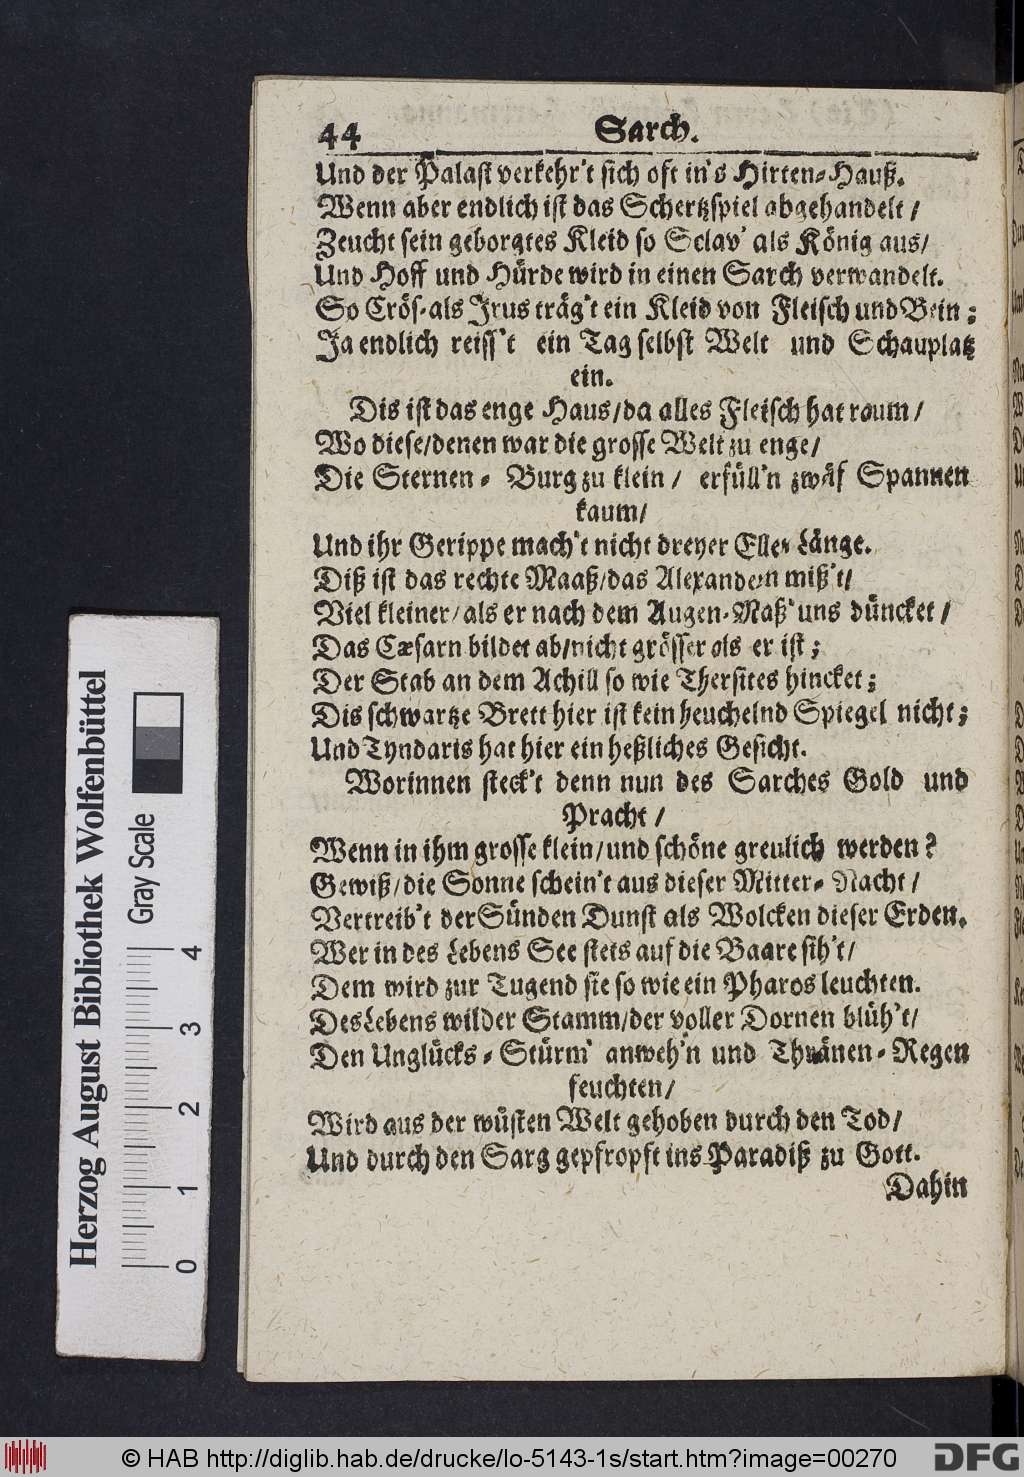 44 Sarch.
Und der Palast verkehr't sich oft in's Hirten-Hauß.
Wenn aber endlich ist das Schertzspiel abgehandelt /
Zeucht sein geborgtes Kleid so Sclav' als König aus/
Und Hoff und Hürde wird in einen Sarch verwandelt.
So Crös-als Irus träg't ein Kleid von Fleisch und Bein;
Ja endlich reiss't ein Tag selbst Welt und Schauplatz
ein.
Dis ist das enge Haus/da alles Fleisch hat raum/
Wo diese/denen war die grosse Welt zu enge/
Die Sternen-Burg zu klein / erfüll'n zwäf Spannen
kaum/
Und ihr Gerippe mach't nicht dreyer Elle- Länge.
Diß ist das rechte Maaß/das Alexandern miß't/
Viel kleiner/als er nach dem Augen-Maß' uns düncket/
Das Cæsarn bildet ab/nicht grösser als er ist;
Der Stab an dem Achill so wie Thersites hincket;
Dis schwartze Brett hier ist kein heuchelnd Spiegel nicht;
Und Tyndaris hat hier ein heßliches Gesicht.
Worinnen steck't denn nun des Sarches Gold und
Pracht /
Wenn in ihm grosse klein/und schöne greulich werden?
Gewiß/die Sonne schein't aus dieser Mitter-Nacht/
Vertreib't der Sünden Dunst als Wolcken dieser Erden.
Wer in des Lebens See stets auf die Baare sih't/
Dem wird zur Tugend sie so wie ein Pharos leuchten.
Des Lebens wilder Stamm/der voller Dornen blüh't/
Den Unglücks-Stürm' anweh'n und Thränen-Regen
feuchten/
Wird aus der wüsten Welt gehoben durch den Tod/
Und durch den Sarg gepfropft ins Paradiß zu Gott.
Dahin
Herzog August Bibliothek Wolfenbüttel
Gray Scale
0 1 2 3 4
© HAB http://diglib.hab.de/drucke/lo-5143-1s/start.htm?image=00270
DFG